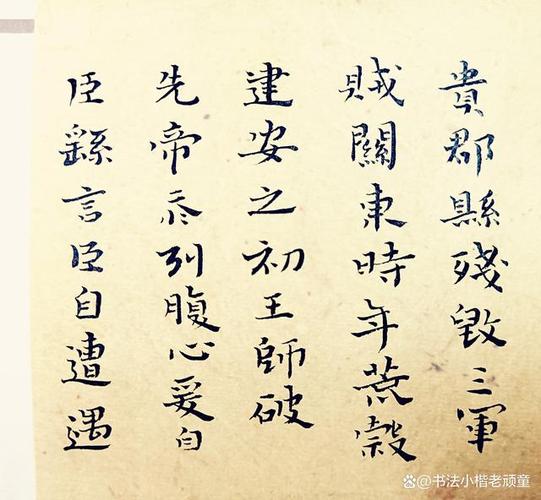 臣繇言臣自遭遇
先帝忝列腹心爰自
建安之初王師破
賊關東時年荒穀
貴郡縣殘毀三軍
@书法小楷老顽童